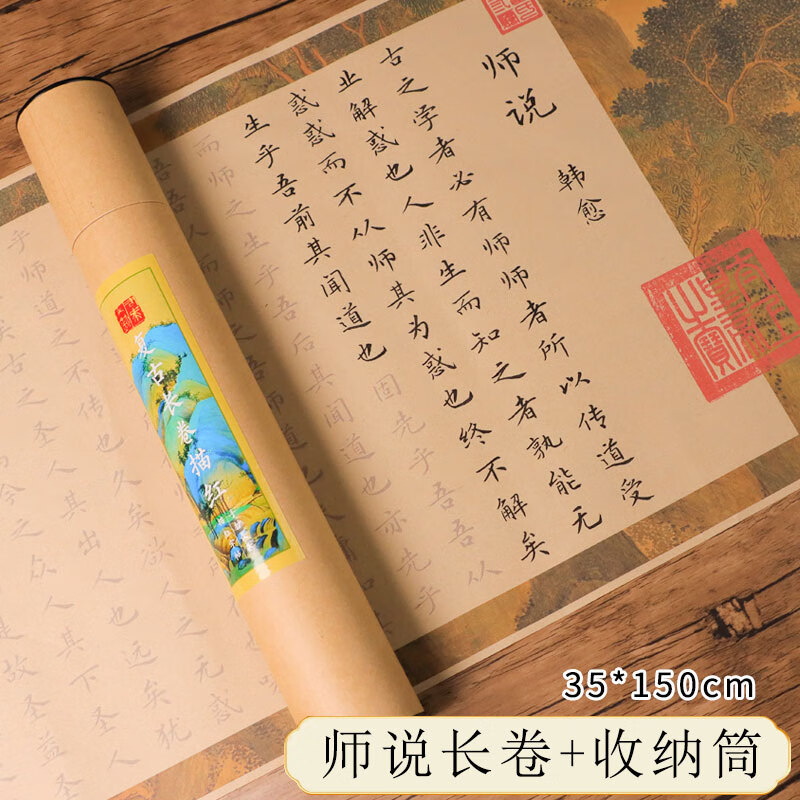 师说
韩愈
古之学者必有师师者所以传道受
业解惑也人非生而知之者孰能无
惑惑而不从师其为惑也终不解矣
生乎吾前其闻道也固先乎吾吾从
而师之生乎吾后其闻道也亦先乎
乎师道之不传也久矣欲人之无惑
矣古之圣人其出人也远矣犹
今之众人其下圣
是故圣益
复古长卷描红
35*150cm
师说长卷+收纳筒